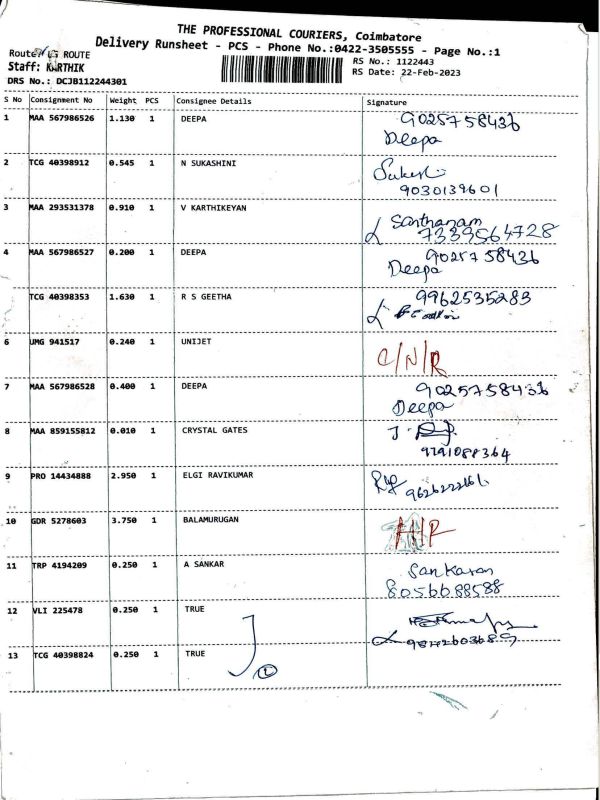 THE PROFESSIONAL COURIERS, Coimbatore
Delivery Runsheet - PCS - Phone No.:0422-3505555 - Page No.:1
Route: ROUTE
Staff: KARTHIK
DRS No.: DCJB112244301
RS No.: 1122443
RS Date: 22-Feb-2023
S No Consignment No Weight PCS Consignee Details Signature
1 MAA 567986526 1.130 1 DEEPA 9025758436
Deepa
2 TCG 40398912 0.545 1 N SUKASHINI
9030139601
3 MAA 293531378 0.910 1 V KARTHIKEYAN Santhanam
7339564728
4 MAA 567986527 0.200 1 DEEPA 9025758436
Deepa
TCG 40398353 1.630 1 R S GEETHA 9962535283
6 UMG 941517 0.240 1 UNIJET C/N/R
7 MAA 567986528 0.400 1 DEEPA 9025758436
Deepa
8 MAA 859155812 0.010 1 CRYSTAL GATES J.
9791088364
9 PRO 14434888 2.950 1 ELGI RAVIKUMAR
10 GDR 5278603 3.750 1 BALAMURUGAN
11 TRP 4194209 0.250 1 A SANKAR Sankaran
8056688588
12 VLI 225478 0.250 1 TRUE
13 TCG 40398824 0.250 1 TRUE